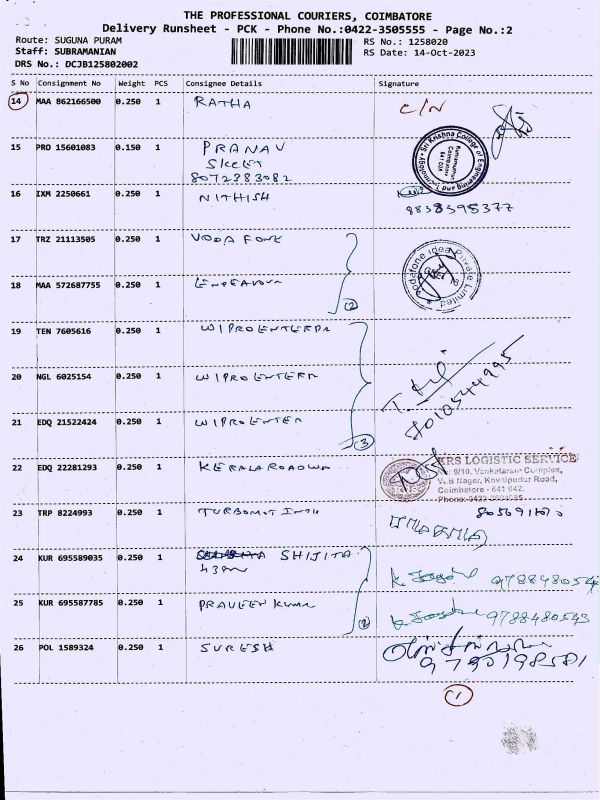 THE PROFESSIONAL COURIERS, COIMBATORE
Delivery Runsheet - PCK - Phone No.:0422-3505555 - Page No.:2
Route: SUGUNA PURAM
RS No.: 1258020
Staff: SUBRAMANIAN
RS Date: 14-Oct-2023
DRS No.: DCJB125802002
S No Consignment No Weight PCS Consignee Details Signature
14 MAA 862166500 0.250 1 RATHA C/N
15 PRO 15601083 0.150 1 PRANAV
SKCET
8072883082
Sri Krishna College of Engineering and Technology
Kuniamuthur
Coimbatore
641 008
16 IXM 2250661 0.250 1 NITHISH
9838395377
17 TRZ 21113505 0.250 1 VODA FONE
Vodafone Idea Private Limited
18 MAA 572687755 0.250 1 ENDEAVOUR
2
19 TEN 7605616 0.250 1 WIPRO ENTERPR
20 NGL 6025154 0.250 1 WIPRO ENTERP
8010544995
21 EDQ 21522424 0.250 1 WIPRO ENTER
3
22 EDQ 22281293 0.250 1 KERALA ROADWA
KRS LOGISTIC SERVICE
9/10, Venkataram Complex,
VLB Nagar, Kovaipudur Road,
Coimbatore - 641 042.
23 TRP 8224993 0.250 1 TURBOMOT INDH
24 KUR 695589035 0.250 1 SHIJITA
43AN
978848054
25 KUR 695587785 0.250 1 PRAVEEN KUMA
2
9788480543
26 POL 1589324 0.250 1 SURESH
9790198581
1